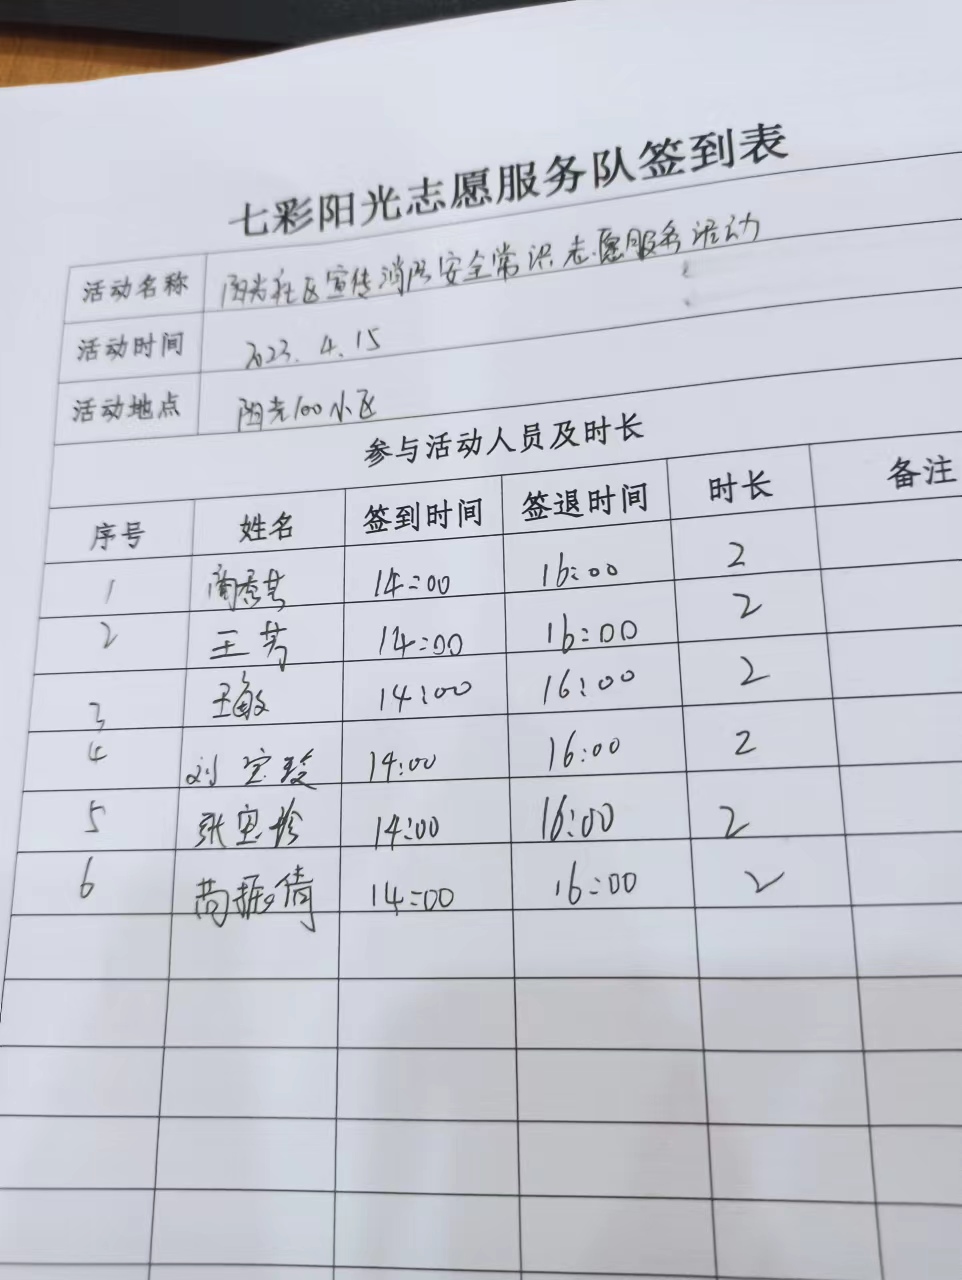 七彩阳光志愿服务队签到表
活动名称 阳光社区宣传消防安全常识志愿服务活动
活动时间 2023.4.15
活动地点 阳光100小区
参与活动人员及时长
序号 姓名 签到时间 签退时间 时长 备注
1 14:00 16:00 2
2 王芳 14:00 16:00 2
3 王敏 14:00 16:00 2
4 刘宝玲 14:00 16:00 2
5 张宝珍 14:00 16:00 2
6 14:00 16:00 2